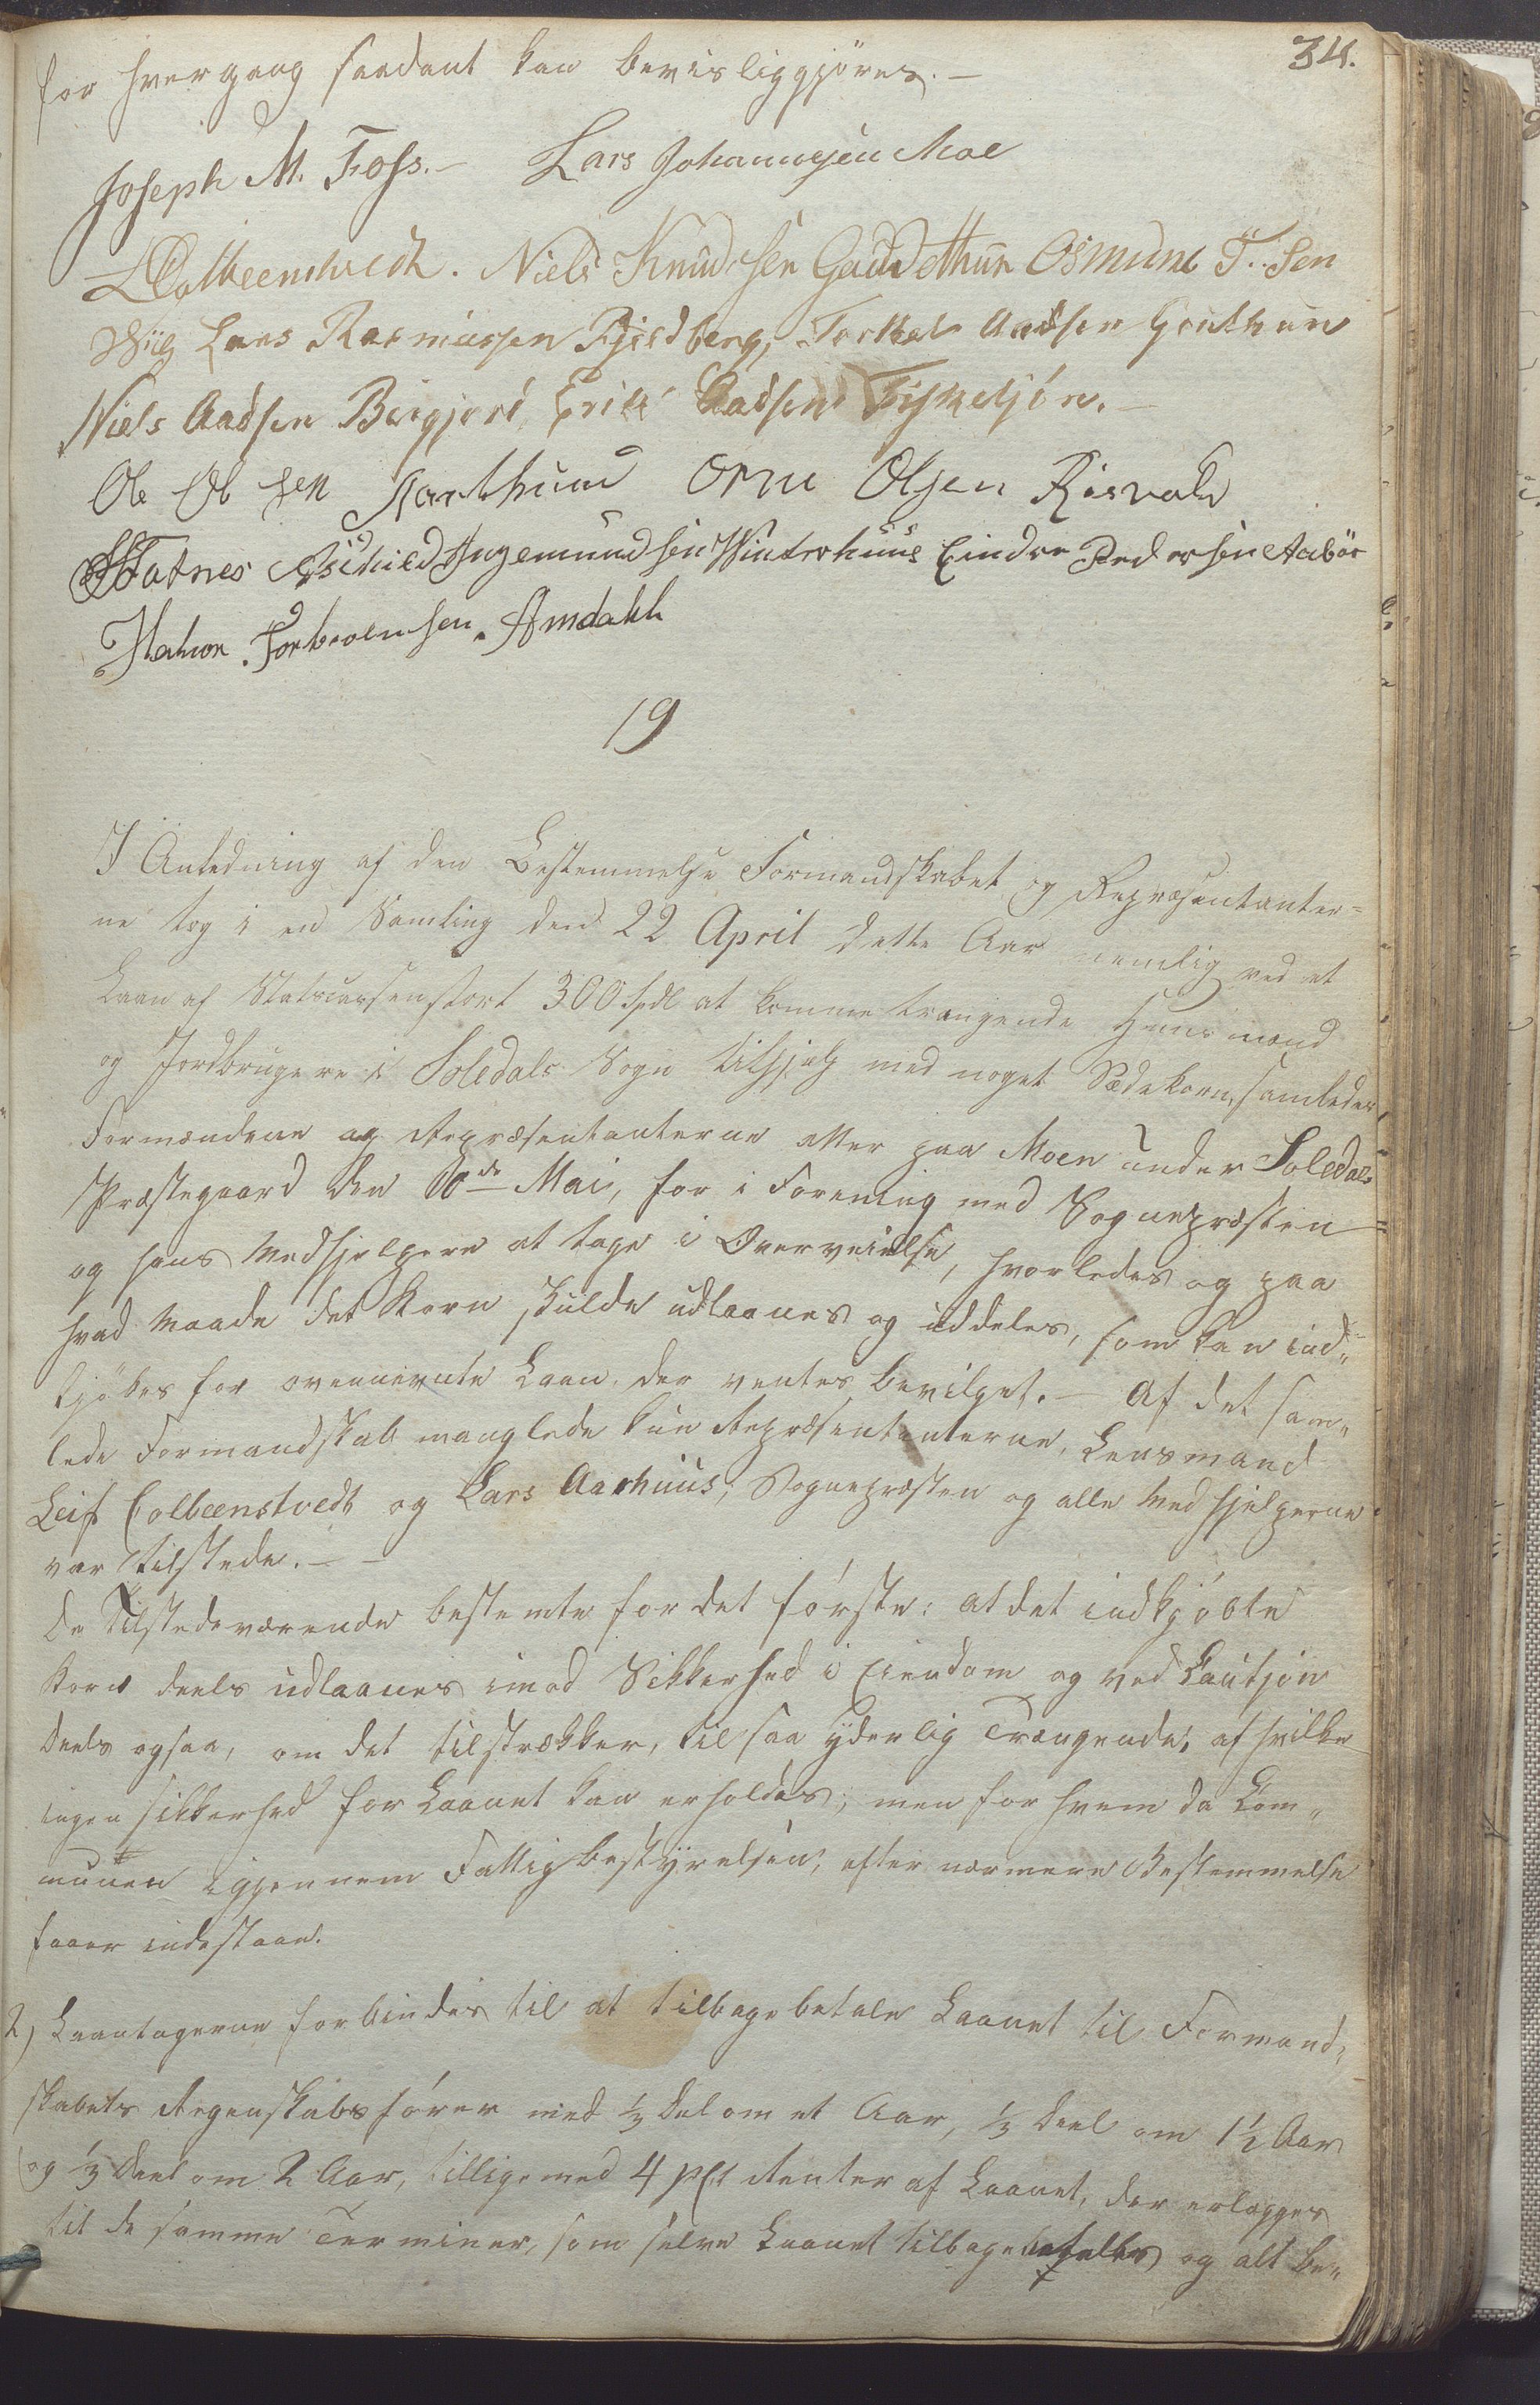 34.
for hvergang saadant kan bevisliggjöres. –
Joseph M. Foss. – Lars Johannesen Moe
L Colbeenstvedt. Niels Knudsen Gauthun Osmund T. Sen
Wiig Lars Rasmussen Fjeldberg, Torkel Aadsen Gouthun
Niels Aadsen Birgjord Erik Aadsen Fiskesjön. –
Ole Ol sen Aarthuus Orm Olsen Risvold
Aschild Ingemundsen Winterhuus Eindre Pedersen Aabøe
Hakon Torbiørnsen Amdahl
19
I Anledning af den Bestemmelse Formandskabet og Repræsentanter=
ne tog i en Samling den 22 April dette Aar nemlig ved et
Laan af Statscassen stort 300 Spdl at komme trængende Huusmænd
og Jordbrugere i Soledals Sogn tilhjelp med noget Sædekorn, samledes
Formændene og Repræsentanterne atter paa Moen under Soledals
Præstegaard den 10de Mai, for i Forening med Sognepræsten
og hans Medhjelpere at tage i Overveielse, hvorledes og paa
hvad Maade det Korn skulde udlaanes og uddeles, som kan ind„
kjöbes for ovennevnte Laan, der ventes bevilget. – Af det sam„
lede Formandskab manglede kun Repræsentanterne, Lensmand
Leif Colbeenstvedt og Lars Aarhuus; Sognepræsten og alle Medhjelperne
var tilstede. – –
De Tilstedeværende bestemte for det förste: at det indkjöbte
Korn deels udlaanes imod Sikkerhed i Eiendom og ved Cautjon
deels ogsaa, om det tilstrækker, til saa yderlig Trængende, af hvilke
ingen Sikkerhed for Laanet kan erholdes; men for hvem da Com„
munen igjennem Fattigbestyrelsen, efter nærmere Bestemmelse
faaer indestaae.
2) Laantagerne forbindes til at tilbagebetale Laanet til Formand„
skabets Regenskabsförer med ⅓ Del om et Aar, ⅓ Deel om 1½ Aar
og ⅓ Deel om 2 Aar, tilligemed 4 pCt Renter af Laanet, der erlægges
til de samme Terminer, som selve Laanet tilbagebetales og alt be„